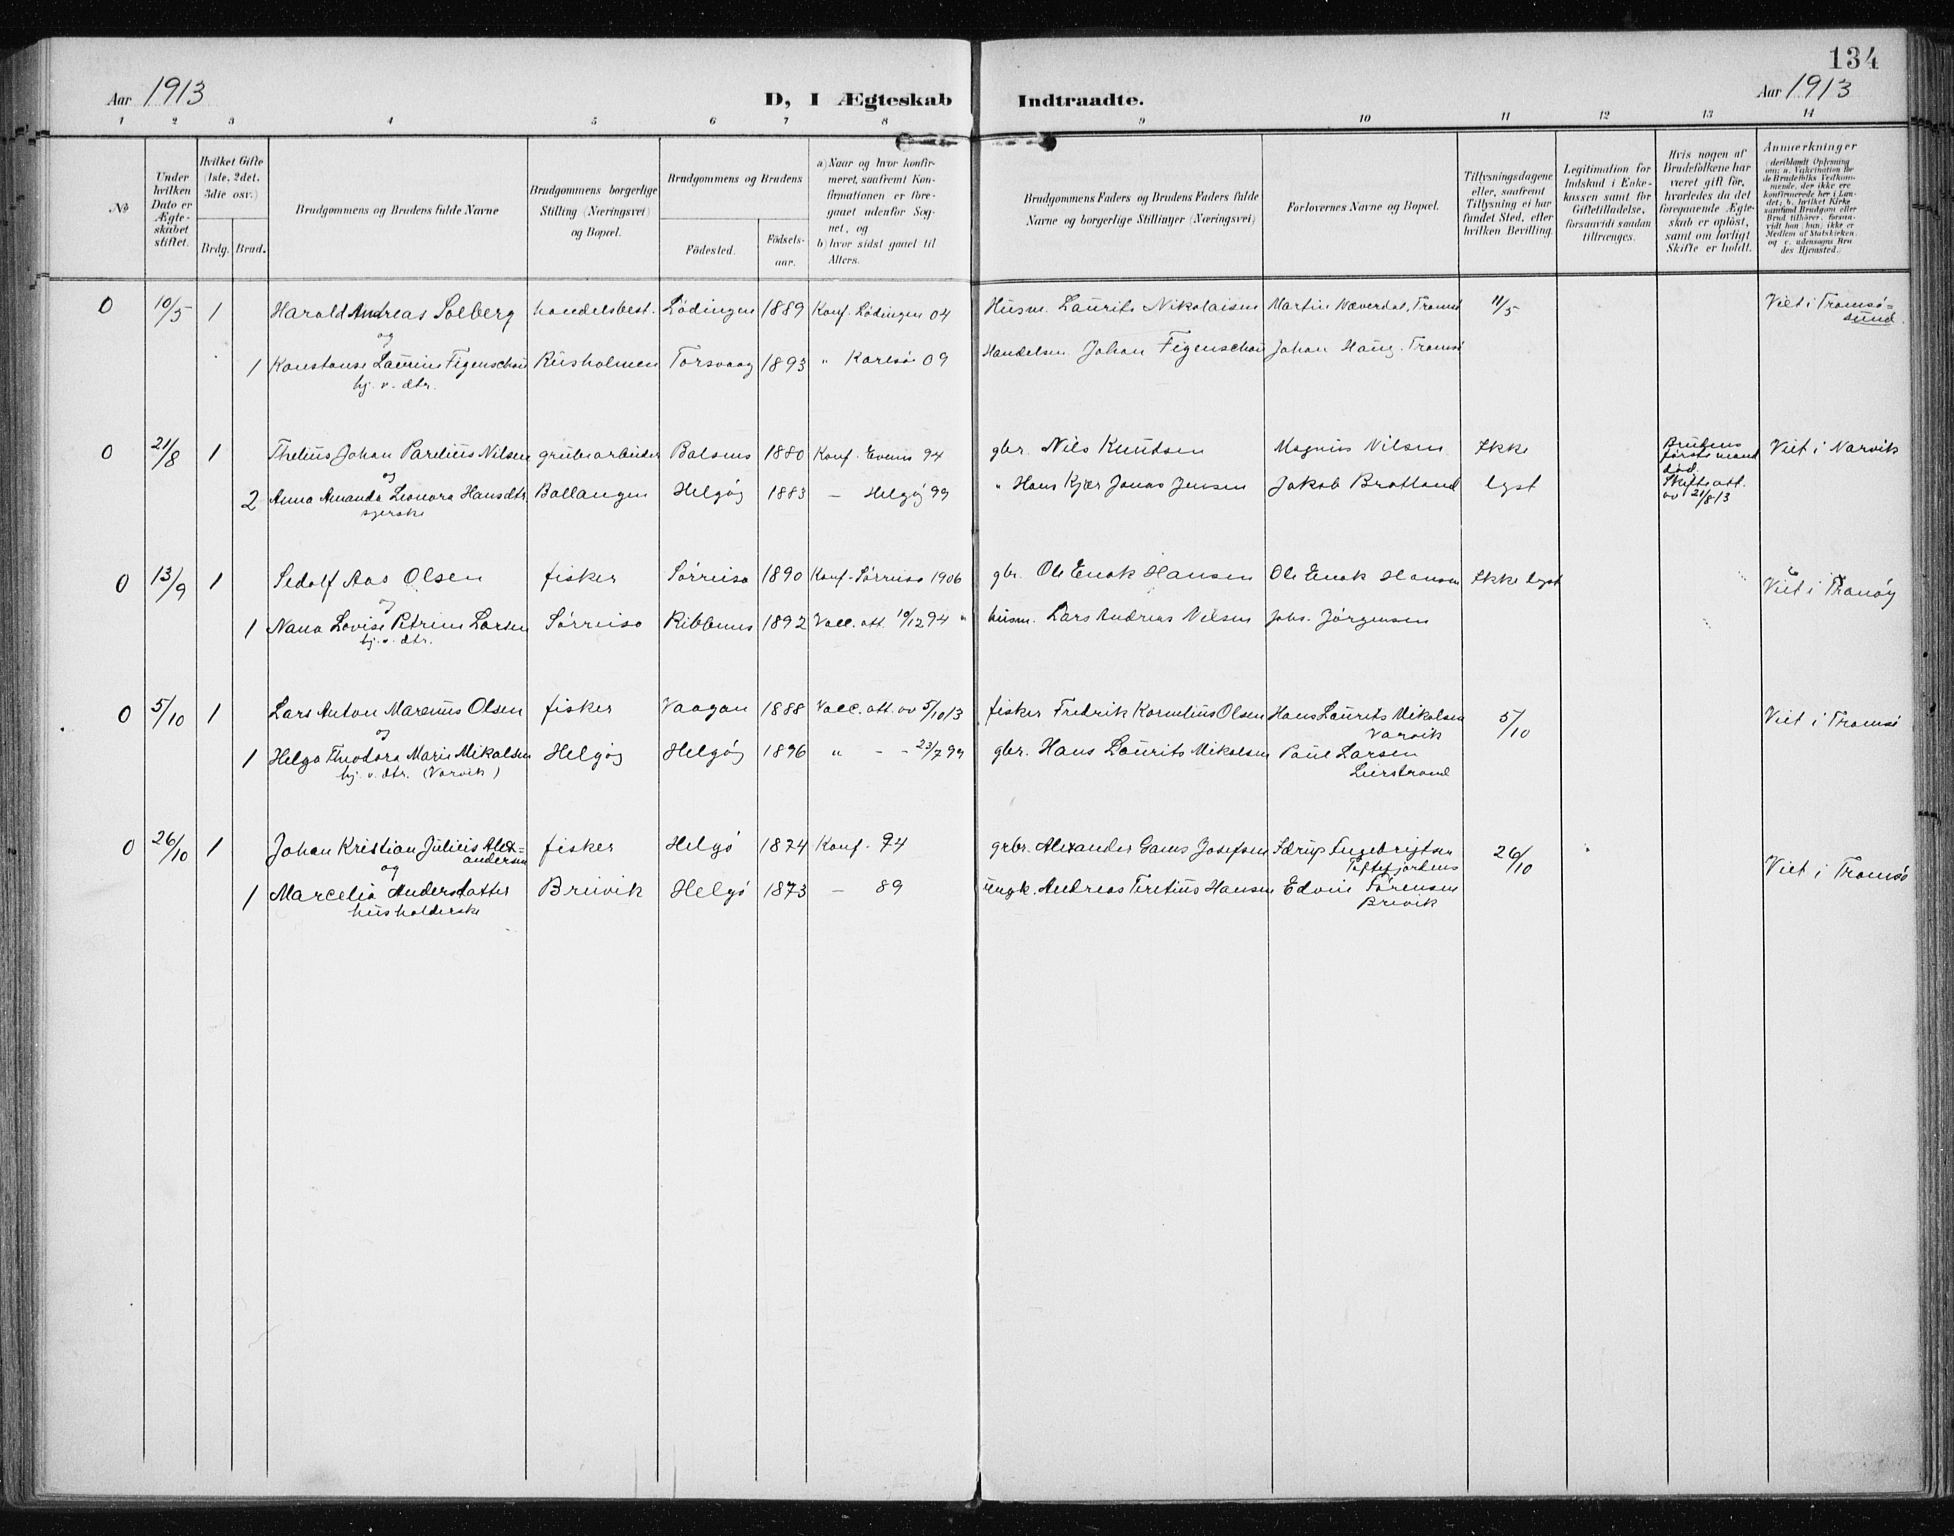 134
Aar 1913
D, I Ægteskab Indtraadte.
Aar 1913
1 2 3 4 5 6 7 8 9 10 11 12 13 14
№
Under hvilken Dato er Ægteskabet stiftet.
Hvilket Gifte (1ste, 2det, 3die osv.)
Brdg. Brud.
Brudgommens og Brudens fulde Navne
Brudgommens borgerlige Stilling (Næringsvei) og Bopæl.
Brudgommens og Brudens
Födested.
Födsels-aar.
a) Naar og hvor konfirmeret, saafremt Konfirmationen er foregaaet udenfor Sognet, og
b) hvor sidst gaaet til Alters.
Brudgommens Faders og Brudens Faders fulde Navne og borgerlige Stillinger (Næringsvei)
Forlovernes Navne og Bopæl.
Tillysningsdagene eller, saafremt Tillysning ei har fundet Sted, efter hvilken Bevilling.
Legitimation for Indskud i Enkekassen samt for Giftetilladelse, forsaavidt saadan tiltrænges.
Hvis nogen af Brudefolkene har været gift för, hvorledes da det foregaaende Ægteskab er oplöst, samt om lovligt Skifte er holdt.
Anmerkninger
(deriblandt Oplysning om: a. Vakcination for Brudefolks Vedkommende, der ikke ere konfirmerede her i Landet; b. hvilket Kirkesamfund Brudgom eller Brud tilhörer, forsaavidt han (hun) ikke er Medlem af Statskirken, og c. udensogns Brudes Hjemsted.)
0 10/5 1 Harald Andreas Solberg handelsbest. Lødingen 1889 Konf. Lødingen 04 Husm. Laurits Nikolaisen Martin Næverdal, Tromsø 11/5 Viet i Tromsø=
sund.
og
1 Konstanse Laurine Figenschou Rusholmen Torsvaag 1893 " Karlsø 09 Handelsm. Johan Figenschou Johan Haug. Tromsø
hj. v. dtr.
0 21/8 1 Thelius Johan Parelius Nilsen grubearbeider Balsnes 1880 Konf. Evenes 94 gbr. Nils Knudsen Magnus Nilsen Ikke Brudens
første mand
død.
Skifteatt.
av 21/8 13 Viet i Narvik
og
2 Anna Amanda Leonora Hansdtr. Ballangen Helgøy 1883 — Helgøy 99 " Hans Kjær Jonas Jensen Jakob Bratland lyst
syerske
0 13/9 1 Sedolf Aas Olsen fisker Sørreisa 1890 Konf. Sørreisa 1906 gbr. Ole Enok Hansen Ole Enok Hansen Ikke lyst Viet i Tranøy
og
1 Nana Lovise Petrine Larsen Sørreisa Ribbenes 1892 Vacc. att. 10/12 94 " husm. Lars Andreas Nilsen Johs. Jørgensen
hj. v. dtr.
0 5/10 1 Lars Anton Marenius Olsen fisker Vaagan 1888 Vacc. att. av 5/10 13 fisker Fredrik Kornelius Olsen Hans Laurits Mikalsen
Varvik 5/10 Viet i Tromsø
og
1 Helga Theodora Marie Mikalsen Helgøy Helgøy 1896 " - - 23/7 99 gbr. Hans Laurits Mikalsen Paul Larsen
Leirstrand
hj. v. dtr. (Varvik)
0 26/10 1 Johan Kristian Julius Alex=
andersen fisker Helgø 1874 Konf. 94 grbr. Alexander Gams Josefsen Sørup Ingebrigtsen
Toftefjordens 26/10 Viet i Tromsø
og
1 Marcelia Andersdatter Breivik Helgø 1873 — 89 ungk. Andreas Teretius Hansen Edvin Sørensen
Breivik
husholderske